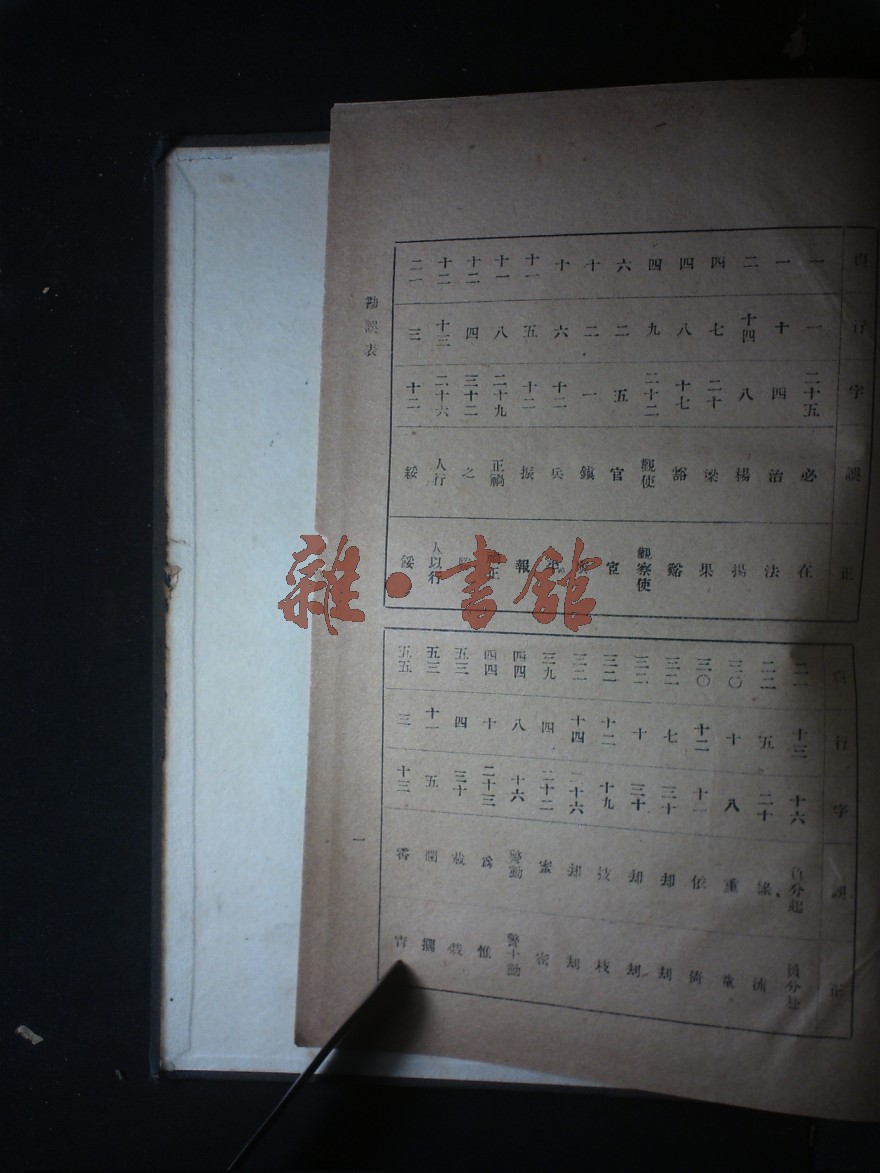 頁 行 字 誤 正
一 一 二十五 必 在
一 十 四 治 法
二 十四 八 楊 揚
四 七 二十 梁 果
四 八 十七 豁 谿
四 九 二十二 觀使 觀察使
六 二 五 官 宦
十 二 一 鎮
十 六 十二 兵
十一 五 十二 振 報
十一 八 二十九 正禍 正
十二 四 三十二 之
十二 十三 二十六 人行 人以行
二一 三 十二 綏
頁 行 字 誤 正
二一 十三 十六
二二 五 二十 流
三〇 十 八 重
三〇 十二 十一 依 倚
三二 七 三十 却 刼
三二 十 三十 却 刼
三二 十二 十九 技 枝
三二 十四 二十六 却 刼
三九 四 二十二 蜜 密
四四 八 十六
四四 十 二十三 爲 惟
五三 四 三十
五三 十一 五
五五 三 十三
勘誤表
一
雜·書館